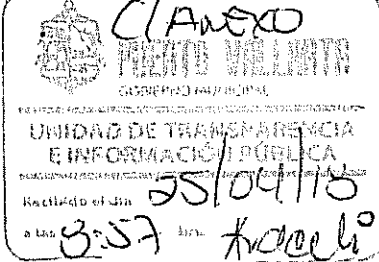 C/ANEXO
PUERTO VALLARTA
GOBIERNO MUNICIPAL
UNIDAD DE TRANSPARENCIA
E INFORMACIÓN PÚBLICA
Recibido el día 25/04/18
a las 8:57 hrs. Araceli